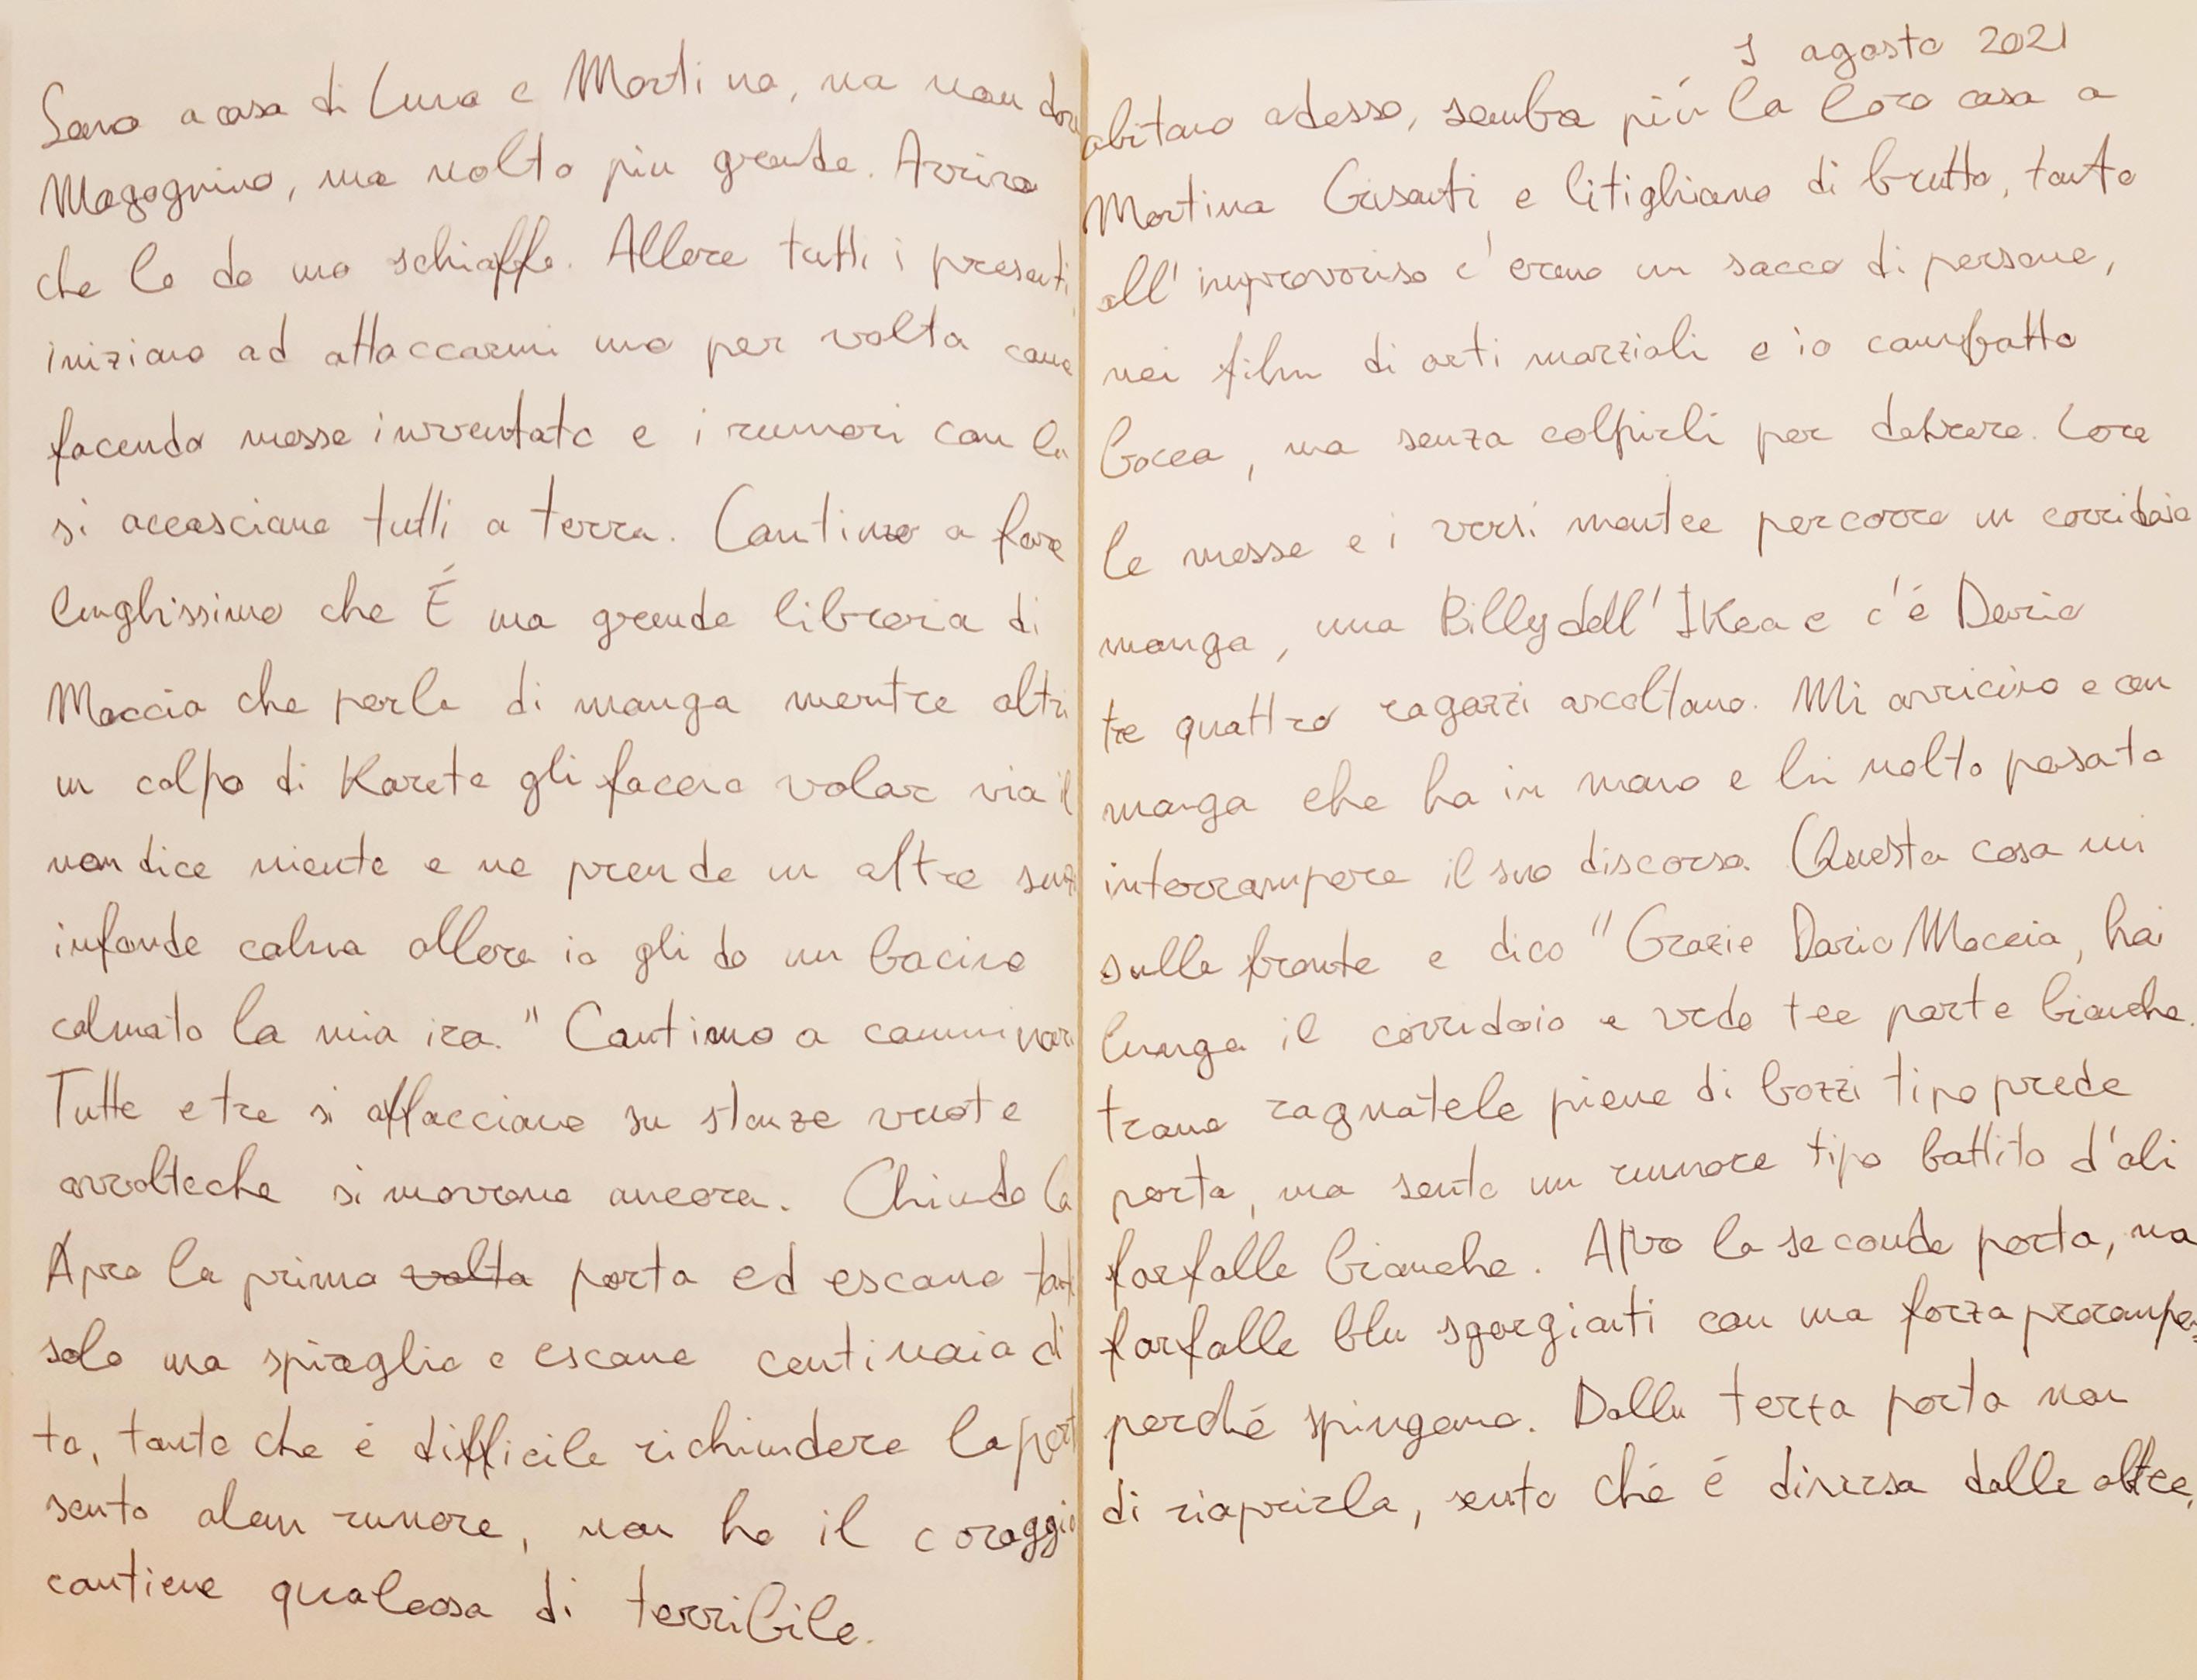 1 agosto 2021
Sono a casa di Luna e Martina, ma non dove abitano adesso, semba più la loro casa a
Magognino, ma molto piu grande. Arriva Martina Grisanti e litighiamo di brutto, tanto
che le do uno schiaffo. Allora tutti i presenti, all'improvoviso c'erano un sacco di persone,
iniziano ad attaccarmi uno per volta come nei film di arti marziali e io combatto
facendo mosse inventate e i rumori con la bocca, ma senza colpirli per davvero. Loro
si accasciano tutti a terra. Continuo a fare le mosse e i versi mentre percorro un corridoio
lunghissimo che È una grande libreria di manga, una Billy dell'IKea e c'é Dario
Moccia che parla di manga mentre altri tre quattro ragazzi ascoltano. Mi avvicino e con
un colpo di Karate gli faccio volar via il manga che ha in mano e lui molto posato
non dice niente e ne prende un altro senza interrompere il suo discorso. Questa cosa mi
infonde calma allora io gli do un bacino sulla fronte e dico "Grazie Dario Moccia, hai
calmato la mia ira." Continuo a camminare lungo il corridoio e vedo tre porte bianche.
Tutte e tre si affacciano su stanze vuote trane ragnatele piene di bozzi tipo prede
avvolte che si movono ancora. Chiudo la porta, ma sento un rumore tipo battito d'ali
Apro la prima volta porta ed escono tante farfalle bianche. Apro la seconda porta, ma
solo uno spiraglio e escono centinaia di farfalle blu sgargianti con una forza prorompen=
te, tanto che é difficile richiudere la porta perché spingono. Dalla terza porta non
sento alcun rumore, non ho il coraggio di riaprirla, sento ché é diversa dalle altre,
contiene qualcosa di terribile.